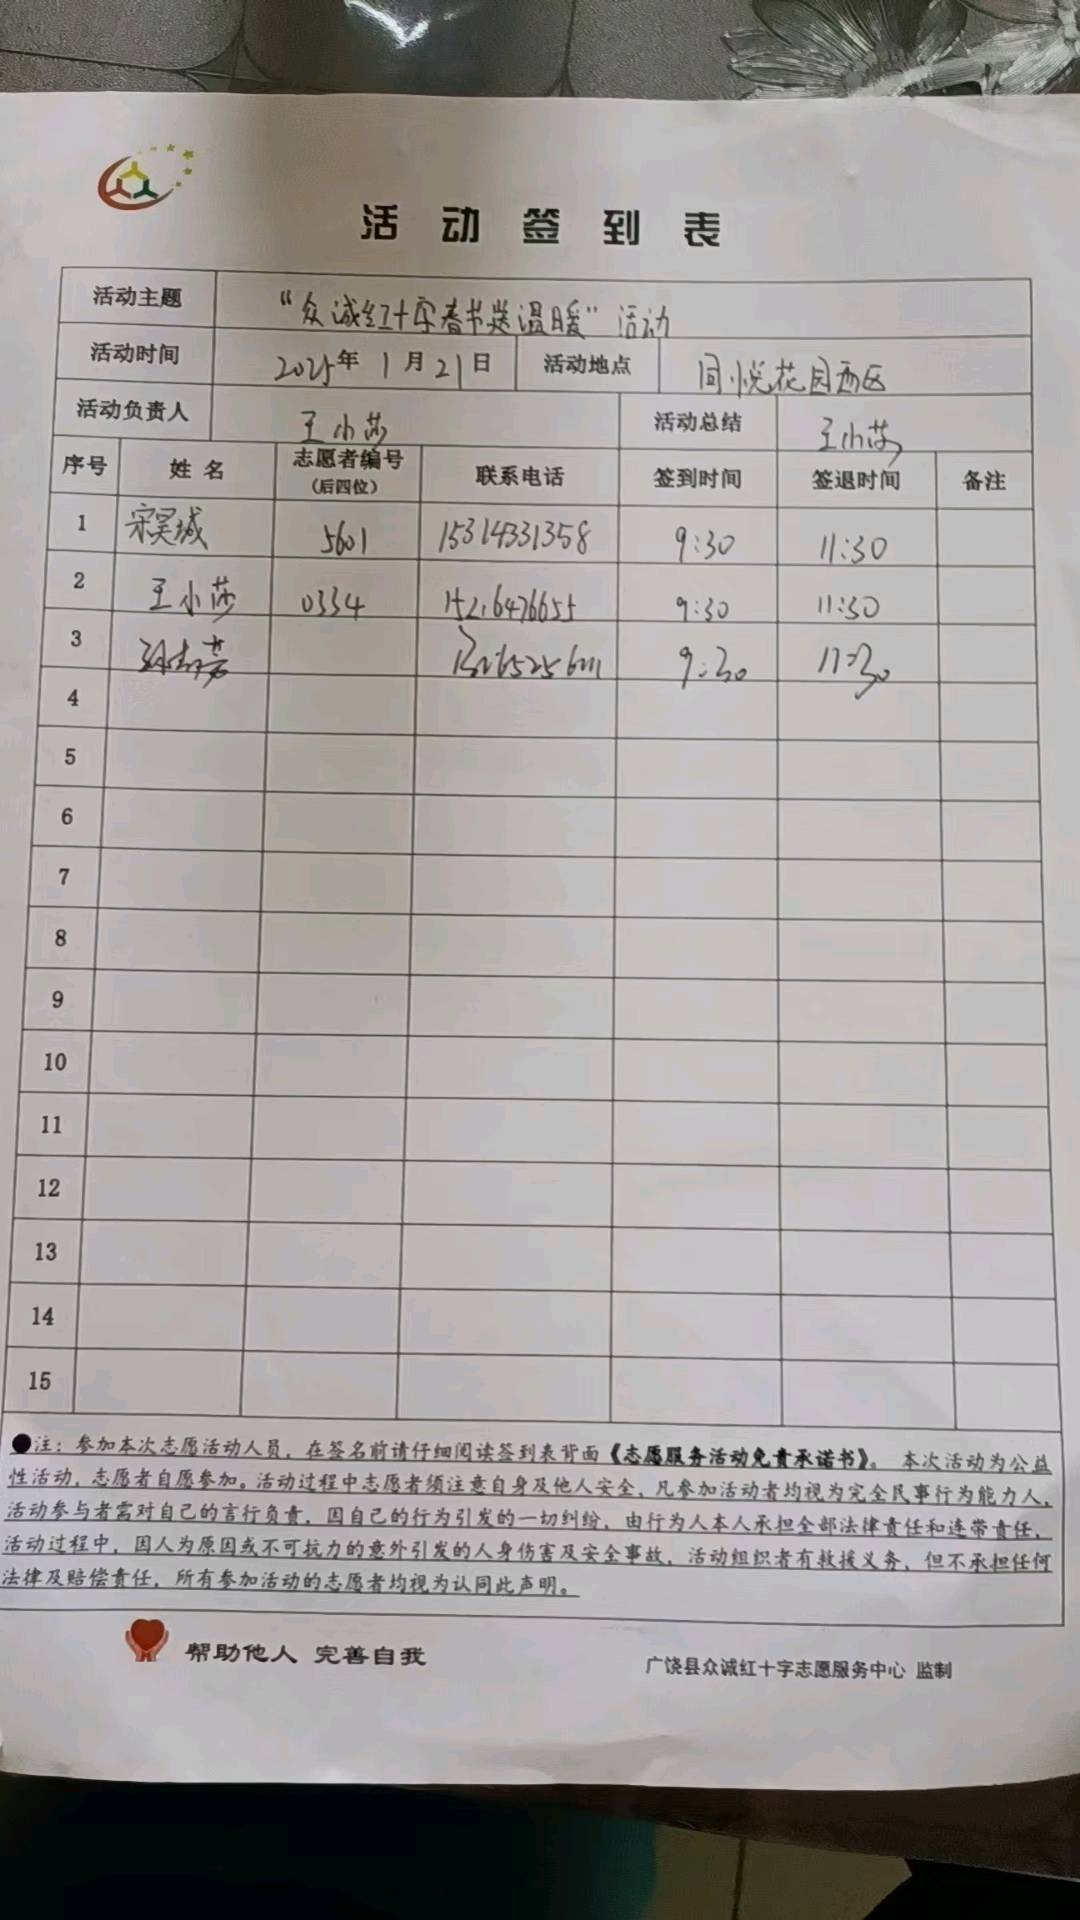 活动签到表
活动主题 “众诚红十字春节送温暖”活动
活动时间 2025年1月21日 活动地点 同悦花园西区
活动负责人 王小莎 活动总结 王小莎
序号 姓名 志愿者编号（后四位） 联系电话 签到时间 签退时间 备注
1 宋昊城 5601 15314331358 9:30 11:30
2 王小莎 0334 9:30 11:30
3 9:30 11:30
4
5
6
7
8
9
10
11
12
13
14
15
●注：参加本次志愿活动人员，在签名前请仔细阅读签到表背面《志愿服务活动免责承诺书》。本次活动为公益
性活动，志愿者自愿参加。活动过程中志愿者须注意自身及他人安全，凡参加活动者均视为完全民事行为能力人，
活动参与者需对自己的言行负责，因自己的行为引发的一切纠纷，由行为人本人承担全部法律责任和连带责任，
活动过程中，因人为原因或不可抗力的意外引发的人身伤害及安全事故，活动组织者有救援义务，但不承担任何
法律及赔偿责任，所有参加活动的志愿者均视为认同此声明。
帮助他人 完善自我
广饶县众诚红十字志愿服务中心 监制